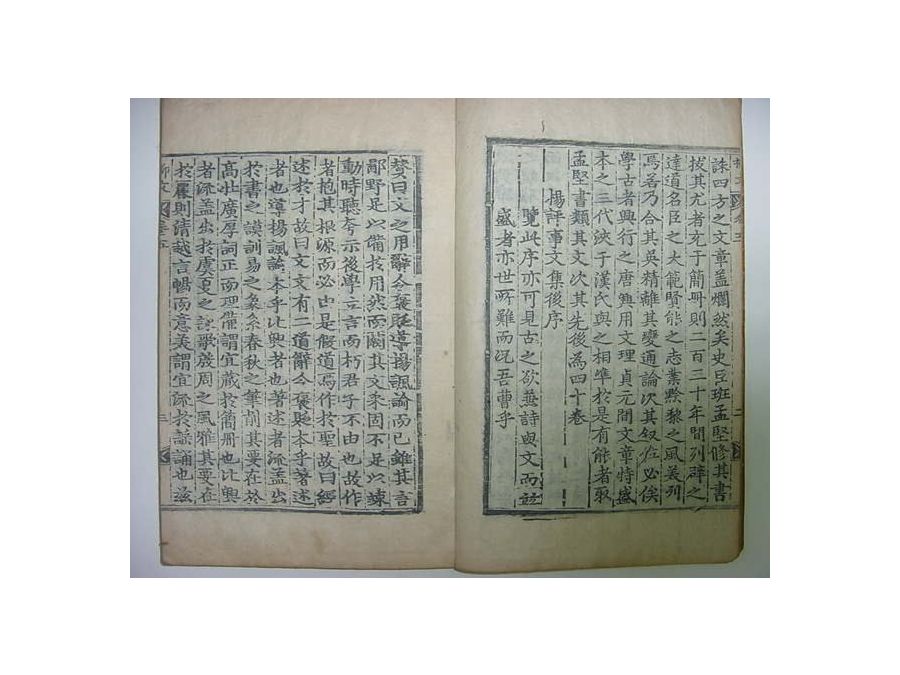 誅四方之文章盖爛然矣史臣班孟堅修其書
拔其尤者充于簡冊則二百三十年間列辟之
達道名臣之大範賢能之志業黔黎之風美列
焉若乃合其英精離其變通論次其叙位必俟
學古者興行之唐興用文理貞元間文章特盛
本之三代浹于漢氏與之相準於是有能者取
孟堅書類其文次其先後為四十卷
楊評事文集後序
覽此序亦可見古之欲兼詩與文而並
盛者亦世所難而况吾曹乎
贊曰文之用辭令褒貶導揚諷諭而已雖其言
鄙野足以備於用然而闕其文采固不足以竦
動時聽夸示後學立言而朽君子不由也故作
者抱其根源而必由是假道焉作於聖故曰經
述於才故曰文文有二道辭令褒貶本乎著述
者也導揚諷諭本乎比興者也著述者流盖出
於書之謨訓易之象系春秋之筆削其要在於
高壯廣厚詞正而理備謂宜藏於簡冊也比興
者流盖出於虞夏之詠歌殷周之風雅其要在
於麗則清越言暢而意美謂宜流於謠誦也兹
柳文 三